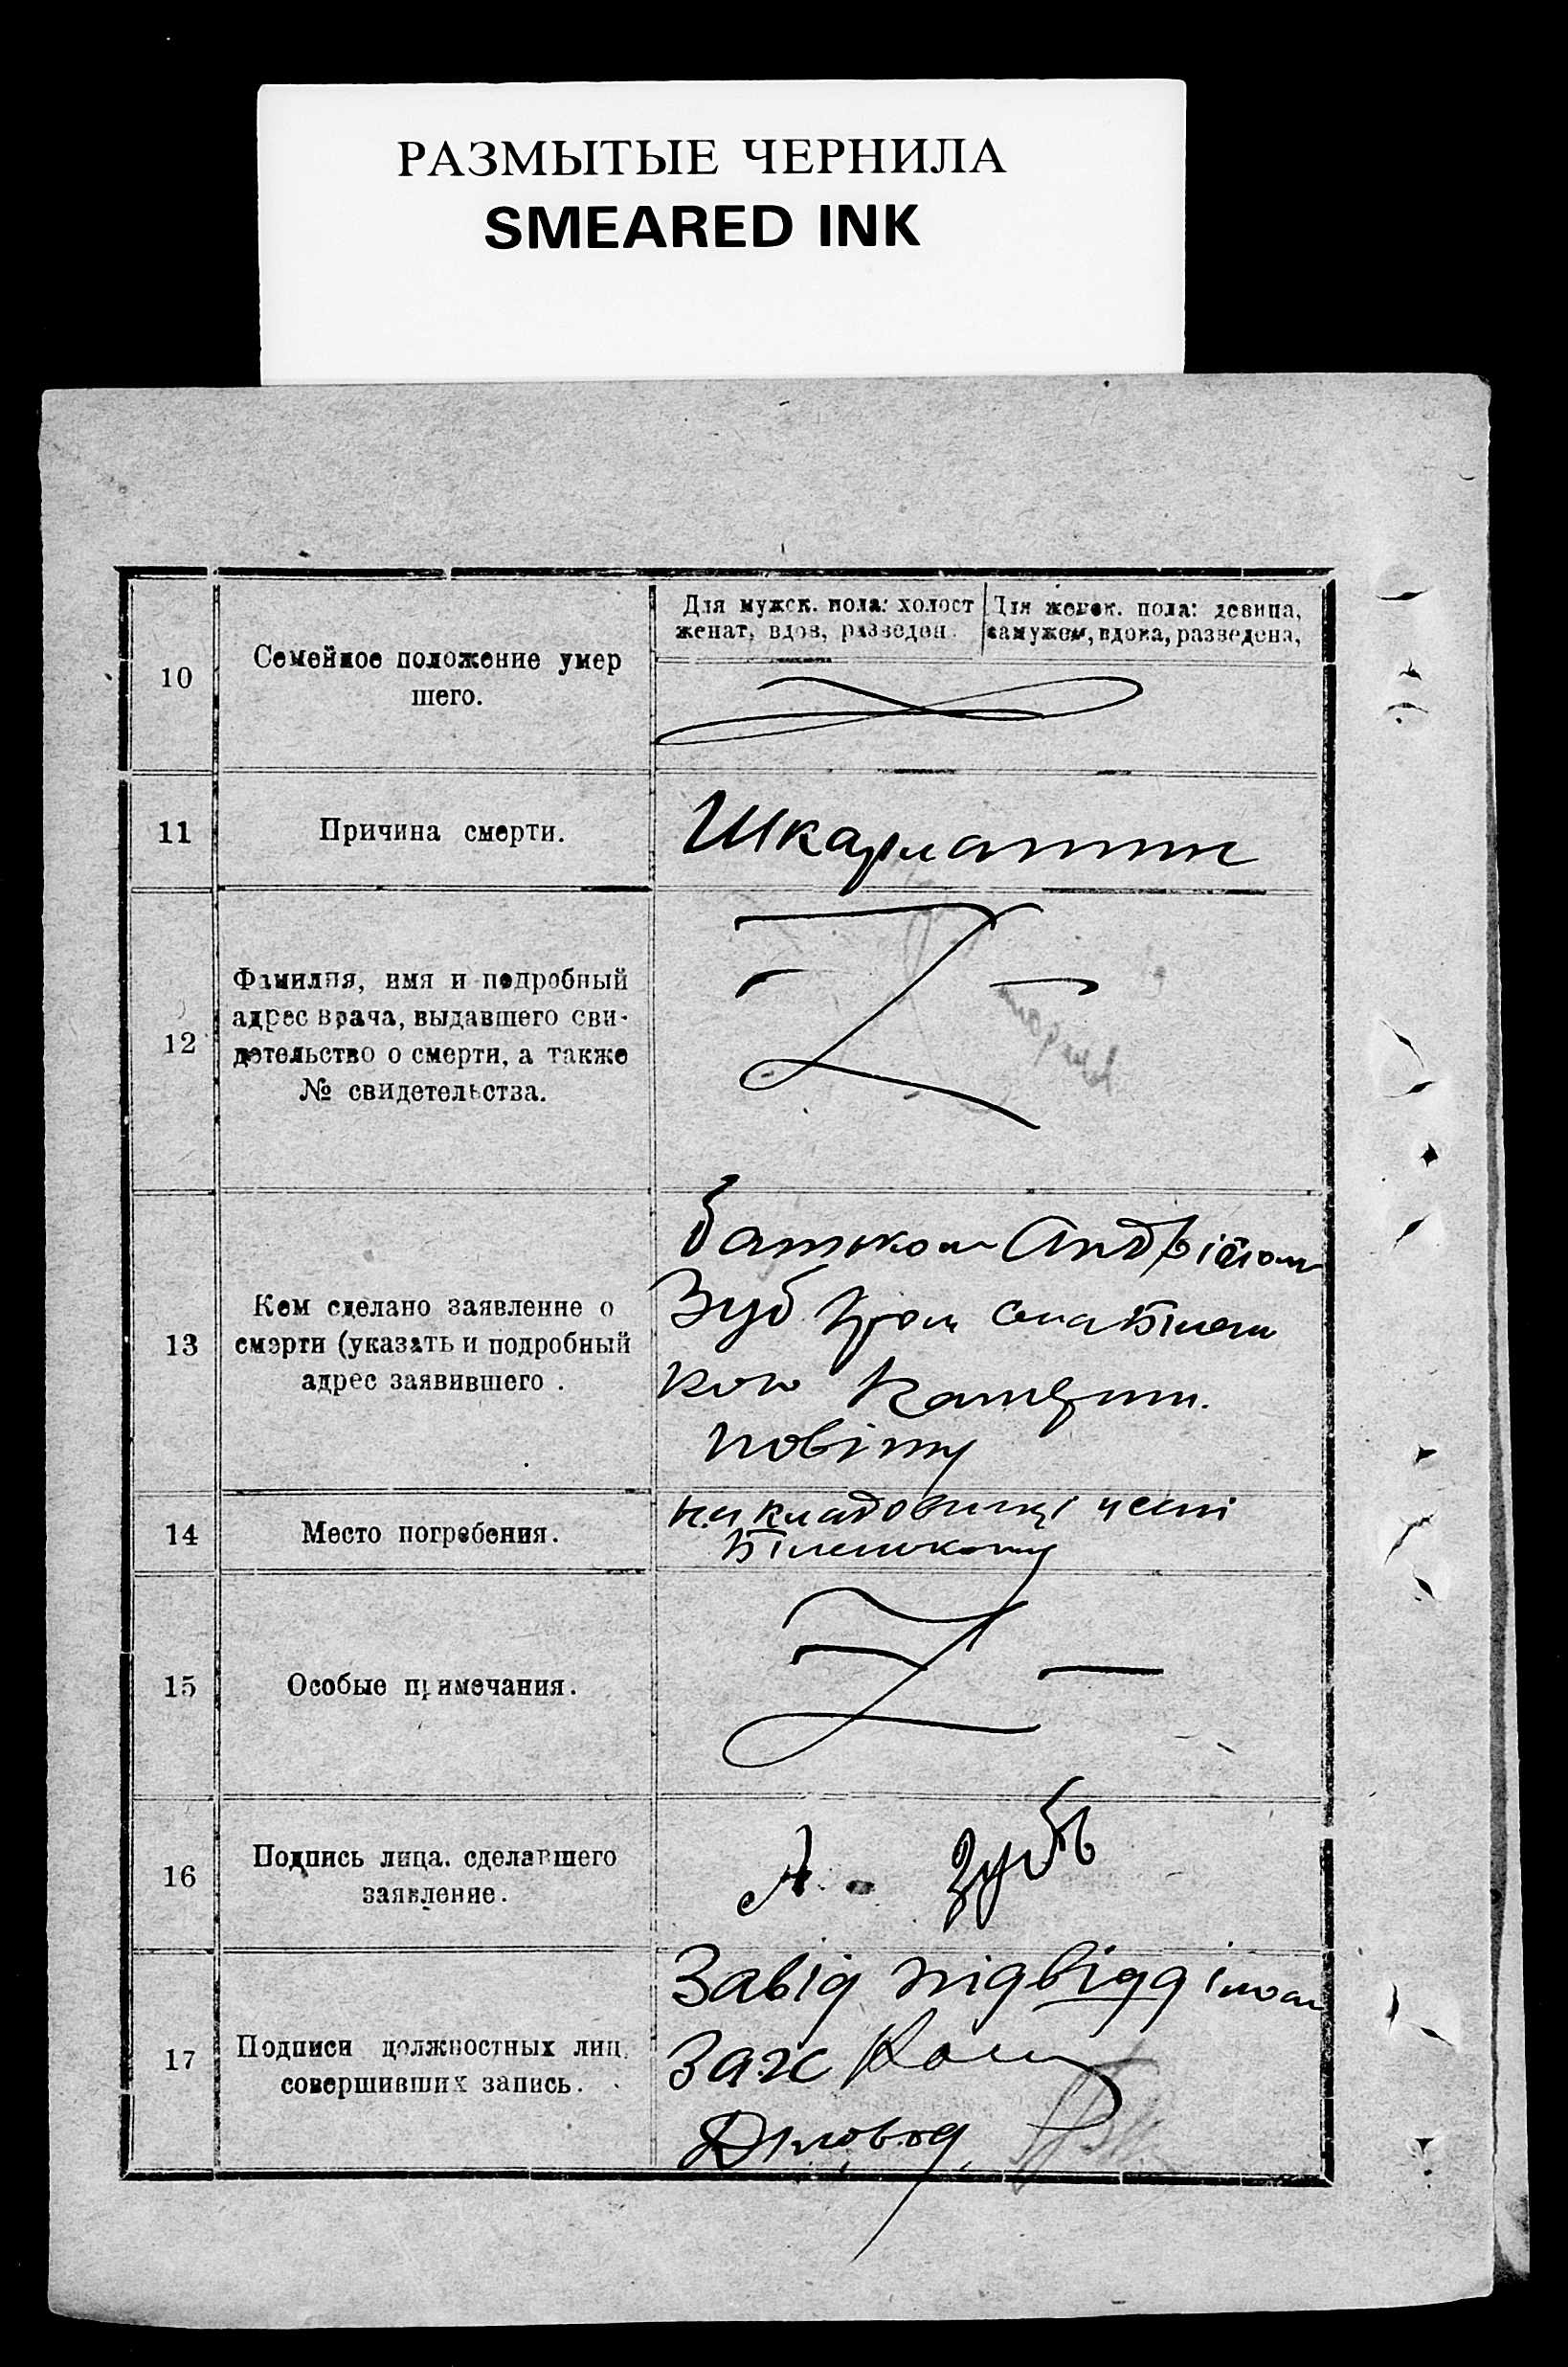 РАЗМЫТЫЕ ЧЕРНИЛА
SMEARED INK
10
Семейное положение умер
шего.
Для мужск. пола: холост
женат, вдов, разведен.
Для женск. пола: девица,
замужем, вдова, разведена,
11
Причина смерти.
Шкарлатин
12
Фамилия, имя и подробный
адрес врача, выдавшего сви-
детельство о смерти, а также
№ свидетельства.
13
Кем сделано заявление о
смерти (указать и подробный
адрес заявившего .
батьком Андрієм
Зуб гром села Білен
кою
повіту
14
Место погребения.
на кладовищі
Біленькому
15
Особые примечания.
16
Подпись лица. сделавшего
заявление.
А. Зубъ
17
Подписи должностных лиц,
совершивших запись.
Завід підвідділом
Загс
Діловод